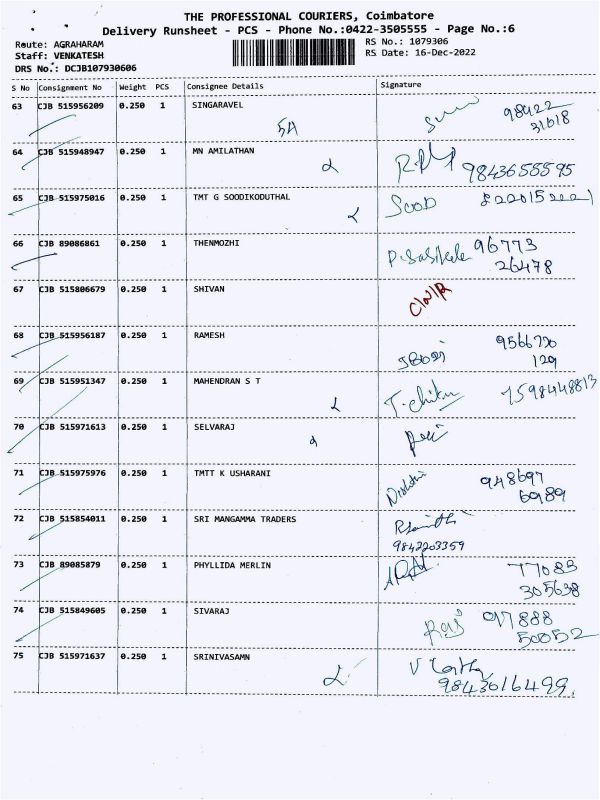 THE PROFESSIONAL COURIERS, Coimbatore
Delivery Runsheet - PCS - Phone No.:0422-3505555 - Page No.:6
Route: AGRAHARAM
RS No.: 1079306
Staff: VENKATESH
RS Date: 16-Dec-2022
DRS No.: DCJB107930606
S No Consignment No Weight PCS Consignee Details Signature
63 CJB 515956209 0.250 1 SINGARAVEL 98422
5A 31618
64 CJB 515948947 0.250 1 MN AMILATHAN
9843655595
65 CJB 515975016 0.250 1 TMT G SOODIKODUTHAL
66 CJB 89086861 0.250 1 THENMOZHI 96773
26478
67 CJB 515806679 0.250 1 SHIVAN
68 CJB 515956187 0.250 1 RAMESH
129
69 CJB 515951347 0.250 1 MAHENDRAN S T 7598448813
70 CJB 515971613 0.250 1 SELVARAJ
71 CJB 515975976 0.250 1 TMTT K USHARANI 948697
60989
72 CJB 515854011 0.250 1 SRI MANGAMMA TRADERS
9842203359
73 CJB 89085879 0.250 1 PHYLLIDA MERLIN 77083
305638
74 CJB 515849605 0.250 1 SIVARAJ
50052
75 CJB 515971637 0.250 1 SRINIVASAMN
9843616499